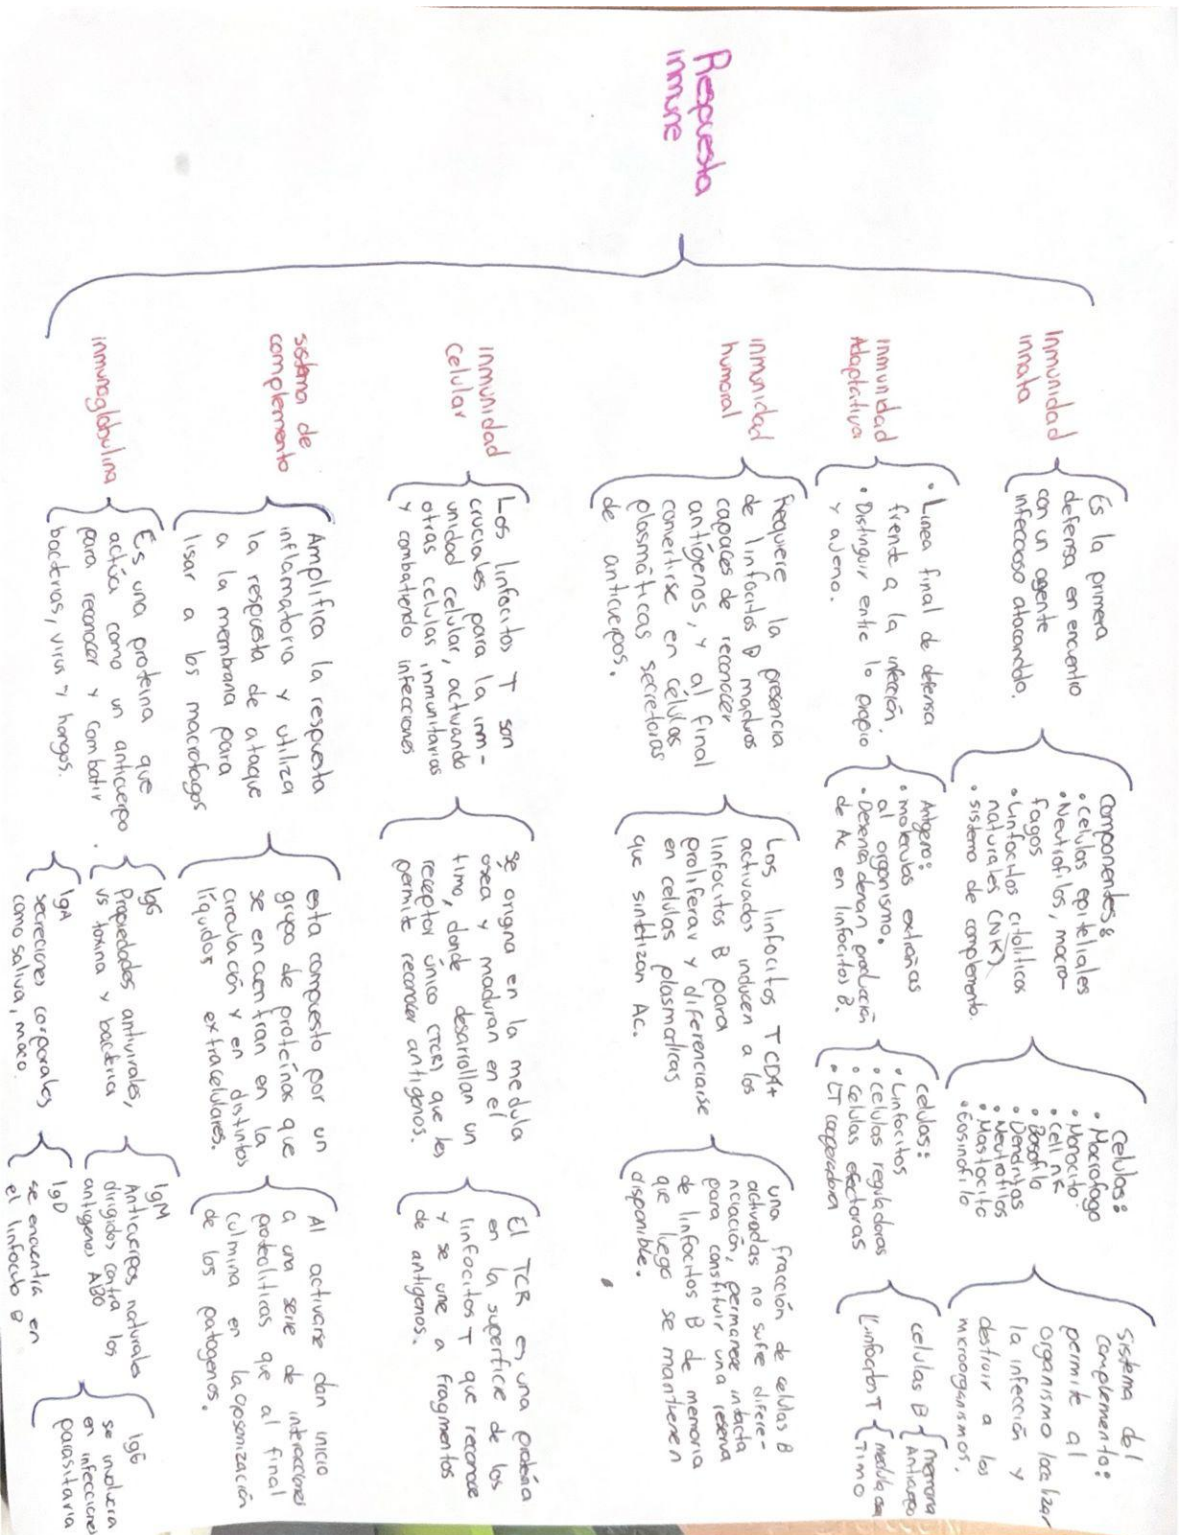 Respuesta
inmune
Inmunidad
innata
Es la primera
defensa en encuentro
con un agente
infeccioso atacando.
Componentes:
• celulas epiteliales
• Neutrofilos, macro-
fagos
• Linfocitos citoliticos
naturales (NK)
• sistema de complemento.
Celulas:
• Macrofago
• Monocito
• Cell nK
• Basofilo
• Dendritas
• Neutrofilos
• Mastocito
• Eosinofilo
sistema del
complemento:
permite al
organismo localizar
la infección y
destruir a los
microorganismos.
inmunidad
Adaptativa
• Linea final de defensa
frente a la infección.
• Distinguir entre lo propio
y ajeno.
Antigeno:
• moleculas extrañas
al organismo.
• Desencadenan producción
de Ac en linfocitos B.
Celulas:
• Linfocitos
• celulas reguladoras
• celulas efectoras
• LT cooperadora
celulas B
memoria
Linfocitos T
medula osea
Timo
inmunidad
humoral
Requiere la presencia
de linfocitos B maduros
capaces de reconocer
antígenos, y al final
convertirse en células
plasmáticas secretoras
de anticuerpos.
Los linfocitos T CD4+
activados inducen a los
linfocitos B para
proliferar y diferenciarse
en celulas plasmaticas
que sintetizan Ac.
una fracción de celulas B
activadas no sufre difere-
nciación, permanece intacta
para constituir una reserva
de linfocitos B de memoria
que luego se mantienen
disponible.
inmunidad
Celular
Los linfocitos T son
cruciales para la inm-
unidad celular, activando
otras células inmunitarias
y combatiendo infecciones
se origina en la medula
osea y maduran en el
timo, donde desarrollan un
receptor único (TCR) que les
permite reconocer antigenos.
El TCR es una proteína
en la superficie de los
linfocitos T que reconoce
y se une a fragmentos
de antigenos.
sistema de
complemento
Amplifica la respuesta
inflamatoria y utiliza
la respuesta de ataque
a la membrana para
lisar a los macrofagos
esta compuesto por un
grupo de proteínas que
se encuentran en la
circulación y en distintos
líquidos extracelulares.
Al activarse dan inicio
a una serie de interacciones
proteoliticas que al final
culmina en la opsonización
de los patogenos.
inmunoglobulina
Es una proteina que
actúa como un anticuerpo
para reconocer y combatir
bacterias, virus y hongos.
IgG
Propiedades antivirales,
vs toxina y bacteria
IgM
Anticuerpos naturales
dirigidos contra los
antigenos ABO
IgE
se involucra
en infecciones
parasitaria
IgA
secreciones corporales
como saliva, moco.
IgD
se encuentra en
el linfocito B